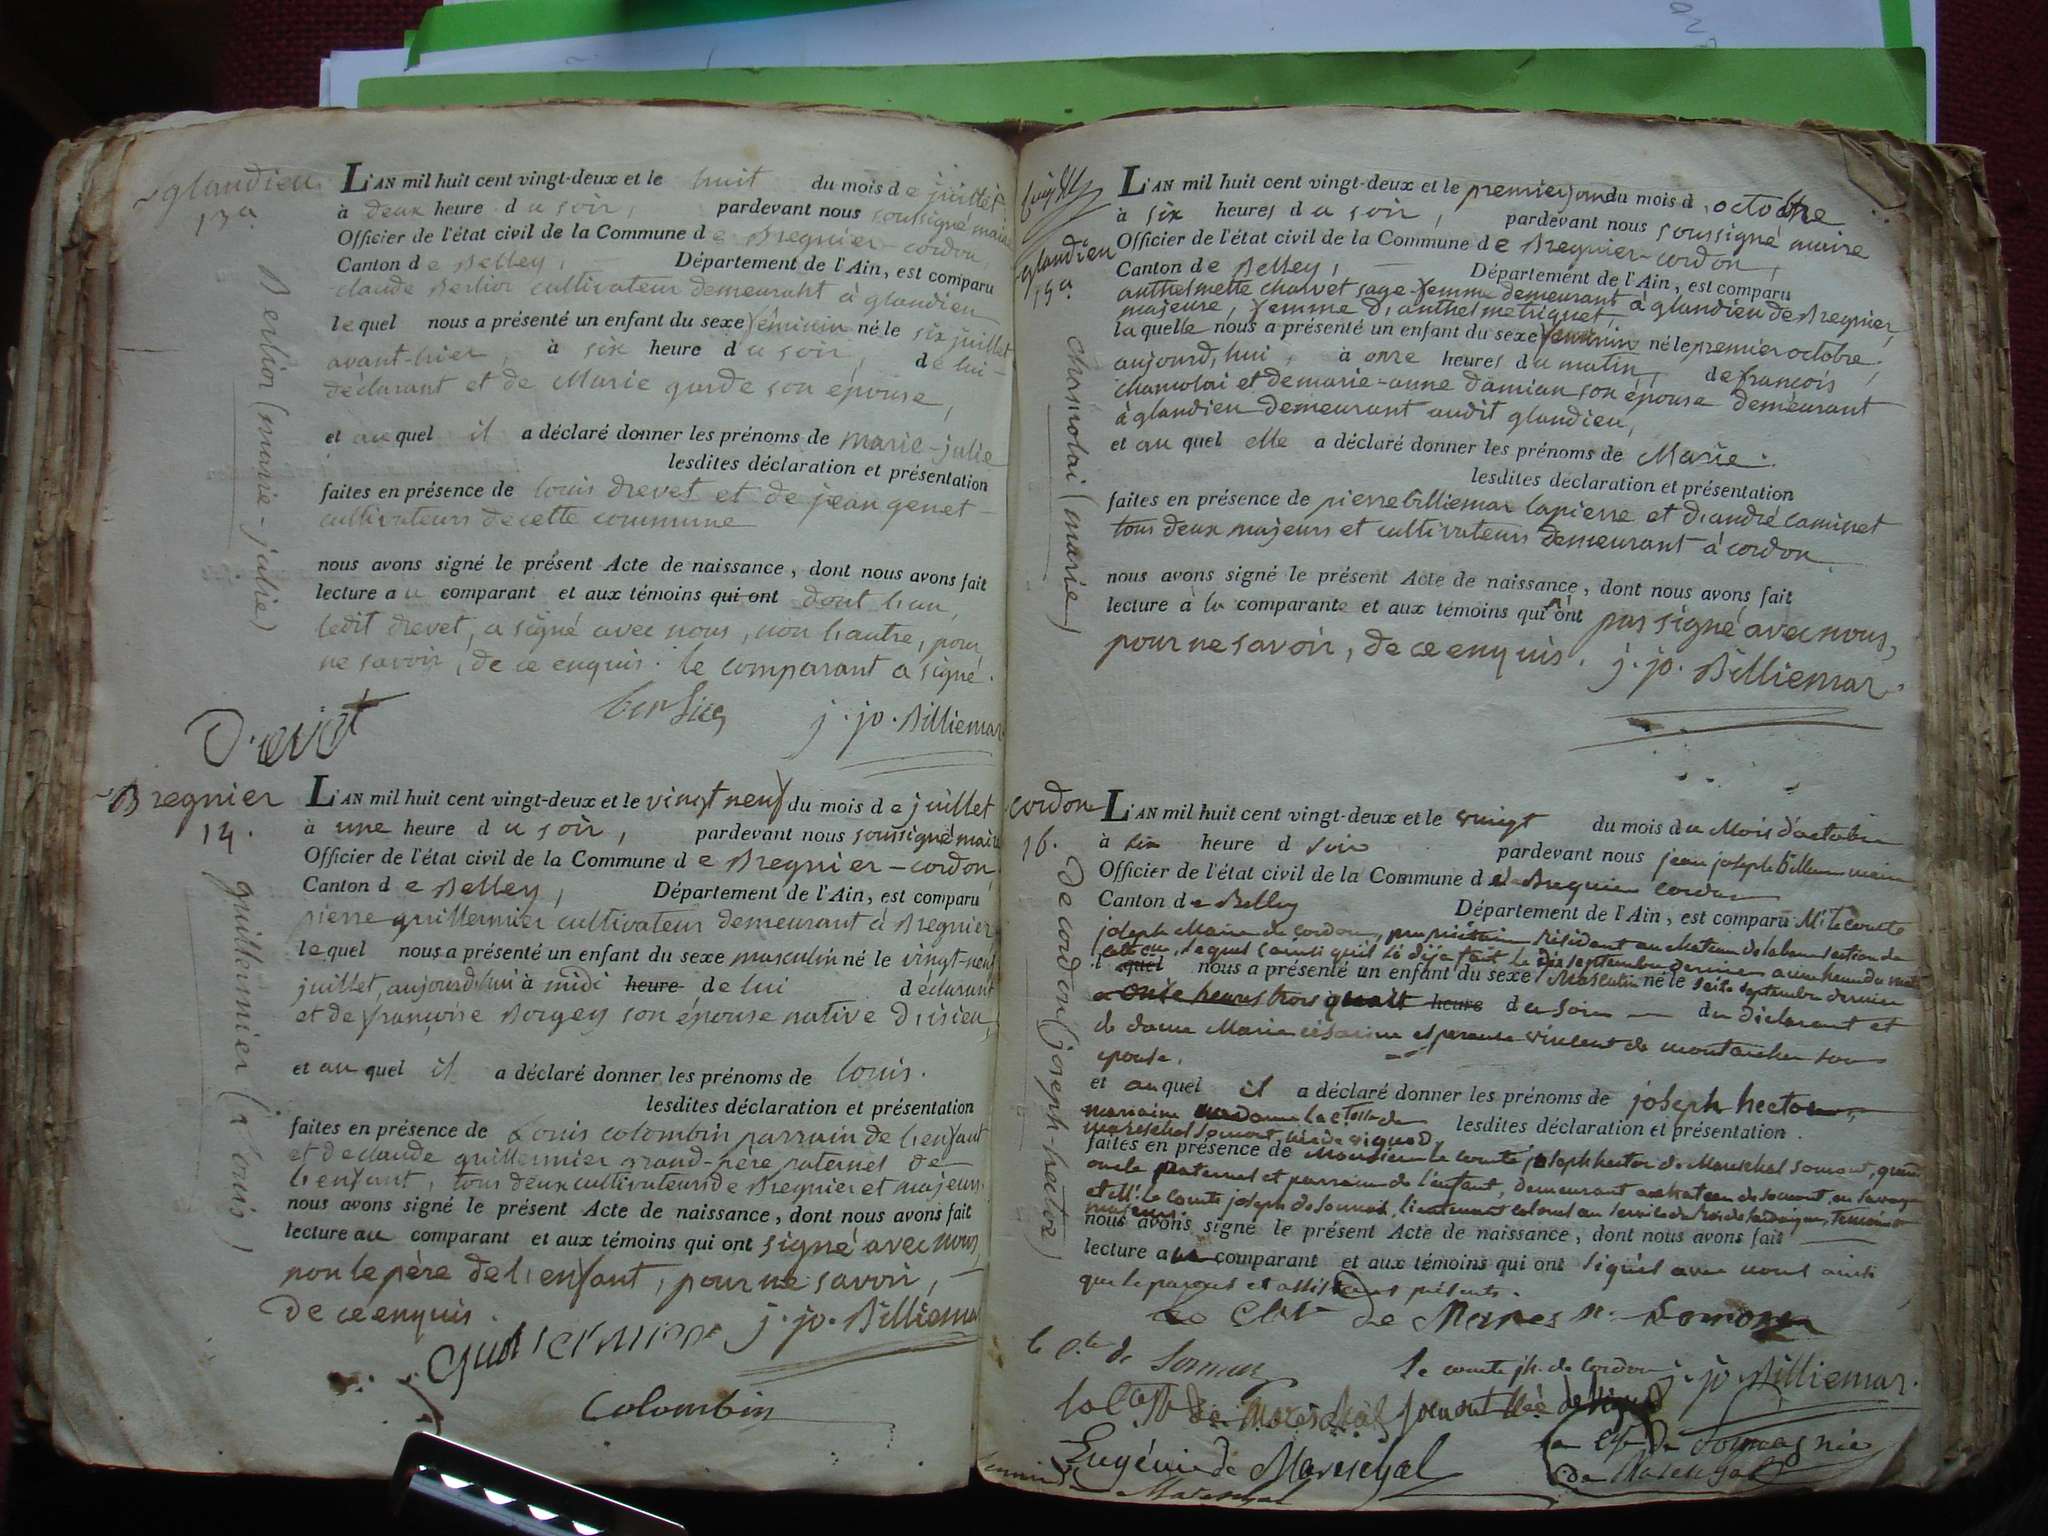 glandieu
13a
Berlion (marie-julie)
L'AN mil huit cent vingt-deux et le huit du mois de juillet
à deux heure du soir, pardevant nous soussigné maire
Officier de l'état civil de la Commune de Bregnier-cordon,
Canton de Belley, Département de l'Ain, est comparu
claude Berlion cultivateur demeurant à glandieu
lequel nous a présenté un enfant du sexe féminin né le six juillet
avant-hier, à six heure du soir, de lui-
déclarant et de Marie garde son épouse,
et auquel il a déclaré donner les prénoms de marie-julie
lesdites déclaration et présentation
faites en présence de louis drevet et de jean genet-
cultivateurs de cette commune
nous avons signé le présent Acte de naissance, dont nous avons fait
lecture au comparant et aux témoins qui ont dont l'un,
ledit drevet, a signé avec nous, non l'autre, pour
ne savoir, de ce enquis. le comparant a signé.
j. jo. Billiemaz
Bregnier
14.
guillermier (louis)
L'AN mil huit cent vingt-deux et le vingt neuf du mois de juillet
à une heure du soir, pardevant nous soussigné maire
Officier de l'état civil de la Commune de Bregnier-cordon,
Canton de Belley, Département de l'Ain, est comparu
pierre guillermier cultivateur demeurant à Bregnier
lequel nous a présenté un enfant du sexe masculin né le vingt-neuf
juillet, aujourd'hui à midi heure de lui déclarant
et de françoise Borgey son épouse native d'isieu,
et auquel il a déclaré donner les prénoms de louis.
lesdites déclaration et présentation
faites en présence de Louis colombin parrain de l'enfant
et de claude guillermier grand-père paternel de
l'enfant, tous deux cultivateurs de Bregnier et majeurs.
nous avons signé le présent Acte de naissance, dont nous avons fait
lecture au comparant et aux témoins qui ont signé avec nous,
non le père de l'enfant, pour ne savoir,
de ce enquis.
j. jo. Billiemaz
Colombin
glandieu
15a
chamolai (marie)
L'AN mil huit cent vingt-deux et le premier jour du mois d'octobre
à six heures du soir, pardevant nous soussigné maire
Officier de l'état civil de la Commune de Bregnier-cordon,
Canton de Belley, Département de l'Ain, est comparu
anthelmette charvet sage-femme demeurant à glandieu de Bregnier,
majeure, femme d'anthelme triquet,
laquelle nous a présenté un enfant du sexe feminin né le premier octobre,
aujourd'hui, à onze heures du matin, de françois
chamolai et de marie-anne damian son épouse demeurant
à glandieu demeurant audit glandieu,
et auquel elle a déclaré donner les prénoms de Marie.
lesdites déclaration et présentation
faites en présence de pierre billiemaz lapierre et d'andré caminet
tous deux majeurs et cultivateurs demeurant à cordon.
nous avons signé le présent Acte de naissance, dont nous avons fait
lecture à la comparante et aux témoins qui n'ont pas signé avec nous,
pour ne savoir, de ce enquis. j. jo. Billiemaz
cordon
16.
de cordon (joseph-hector)
L'AN mil huit cent vingt-deux et le vingt du mois du Mois d'octobre
à six heure d soir pardevant nous jean joseph billiemaz maire
Officier de l'état civil de la Commune de Bregnier cordon
Canton de Belley Département de l'Ain, est comparu Mr le comte
joseph Marie de cordon, propriétaire résidant au chateau de
lequel (ainsi qu'il l'a déja fait le dix septembre dernier
l quel nous a présenté un enfant du sexe Masculin né le seize septembre dernier
a onze heures trois quart heure du soir du déclarant et
de dame Marie césarine esperance vincent de montarcher son
epouse,
et auquel il a déclaré donner les prénoms de joseph hector,
marraine madame la ctesse de
mareschal somont née de viguod, lesdites déclaration et présentation
faites en présence de Monsieur le comte joseph hector de Mareschal somont, grand
oncle paternel et parrain de l'enfant, demeurant au chateau de somont en savoye
et Mr le comte joseph de somont, lieutenant colonel au service du roi de sardaigne, témoins
majeurs.
nous avons signé le présent Acte de naissance, dont nous avons fait
lecture au comparant et aux témoins qui ont signés avec nous ainsi
que le parens et présents.
le comte jh. de Cordon j. jo. Billiemaz
Eugénie de Mareschal
Mareschal